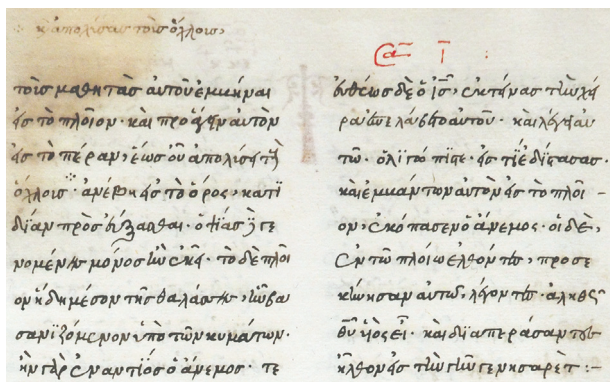 κ ἀπολύσας τοῖς ὄχλοις,
τοῖς μαθητὰς αὐτοῦ ἐμβῆναι
εἰς τὸ πλοῖον· καὶ προάγειν αὐτὸν
εἰς τὸ πέραν, ἕως οὗ ἀπολύσει τοὺς
ὄχλοις· ἀνέβη εἰς τὸ ὄρος, κατ ἰ
δίαν προσεύξασθαι· ὀψίας δὲ γε
νομένης μόνος ἦν ἐκεῖ· τὸ δὲ πλοῖ
ον ἤδη μέσον τῆς θαλάσσης, ἦν βα
σανιζόμενον ὑπὸ τῶν κυμάτων·
ἦν γὰρ ἐναντίος ὁ ἄνεμος· τε
εὐθέως δὲ ὁ ἰς̅, ἐκτείνας τὴν χεῖ
ρα ἐπελάβετο αὐτοῦ· καὶ λέγει αυ
τῶ· ὀλιγόπιστε· εἰς τί ἐδίστασας·
καὶ ἐμβάντων αὐτῶν εἰς τὸ πλοῖ –
ον, ἐκόπασεν ὁ ἄνεμος· οἱ δὲ,
ἐν τῶ πλοίω ἐλθόντες, προσε
κύνησαν αὐτῶ, λέγοντες· ἀληθῶς
θυ̅ υἱὸς εἶ· καὶ διαπεράσαντες
ἦλθον εἰς τὴν γῆν γεννησαρέτ :–